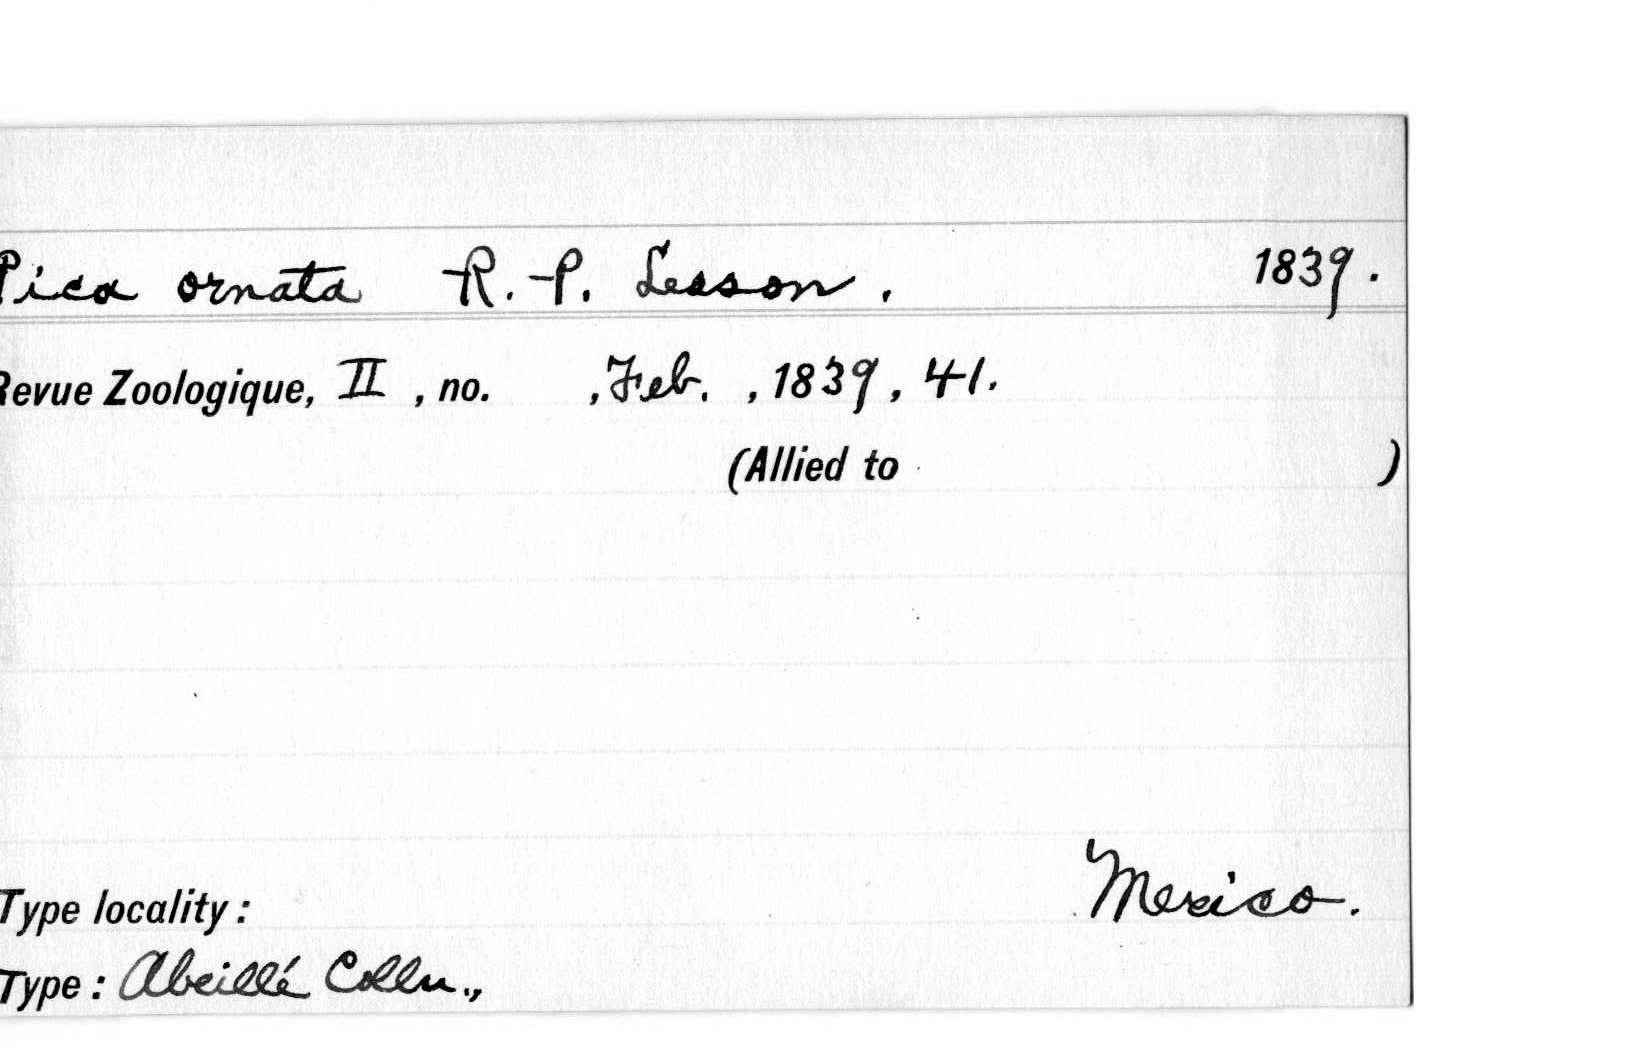 Pica ornata R.-P. Lesson. 1839.
Revue Zoologique, II, no. , Feb. , 1839, 41.
(Allied to )
Type locality: Mexico.
Type: Abeillé Colln.,